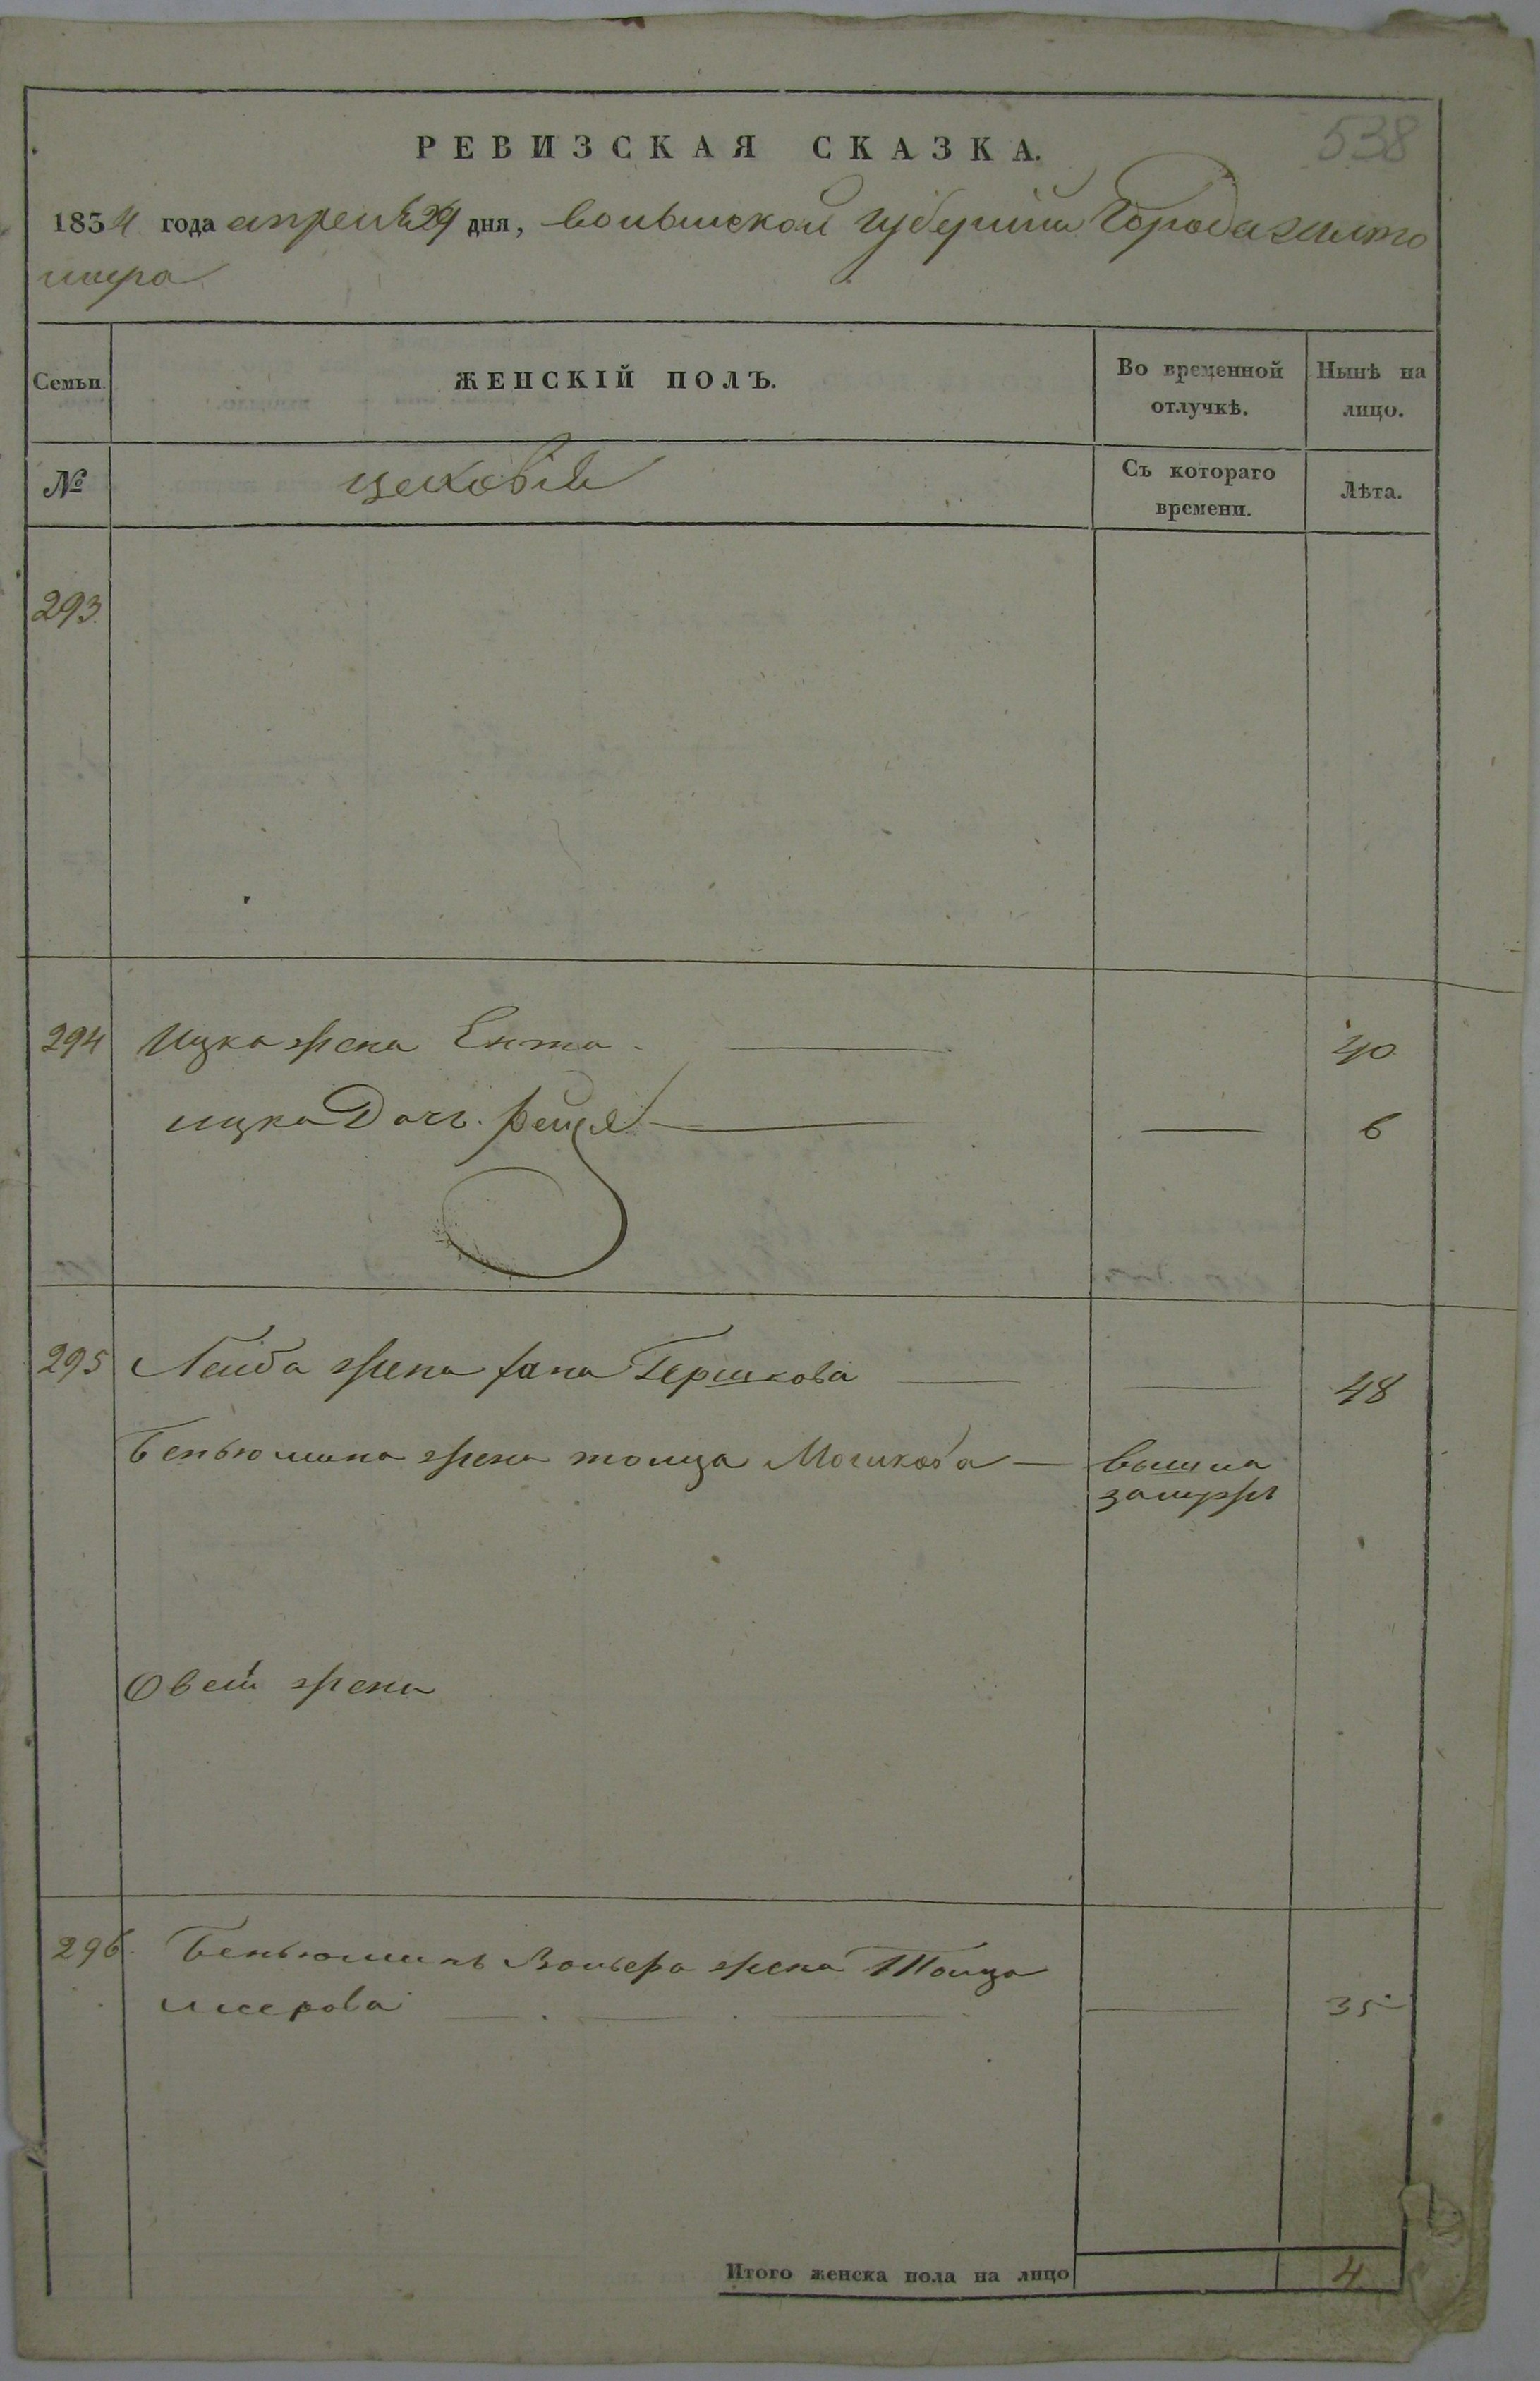 538
РЕВИЗСКАЯ СКАЗКА.
1834 года апреля 29 дня, волынской губернии Города Жито
мира
Семьи
ЖЕНСКІЙ ПОЛЪ.
Во временной отлучкѣ.
Нынѣ на лицо.
№
Съ котораго времени.
Лѣта.
293.
294 Ицка жена Ента 40
ицка Дочь Рейзя 6
295 Лейба жена Гершкова 48
Беньюмина жена тойца Мошкова вышла
замужъ
Овсей жена
296 Беньюминъ Вольфа жена Тойца
35
Итого женска пола на лицо 4